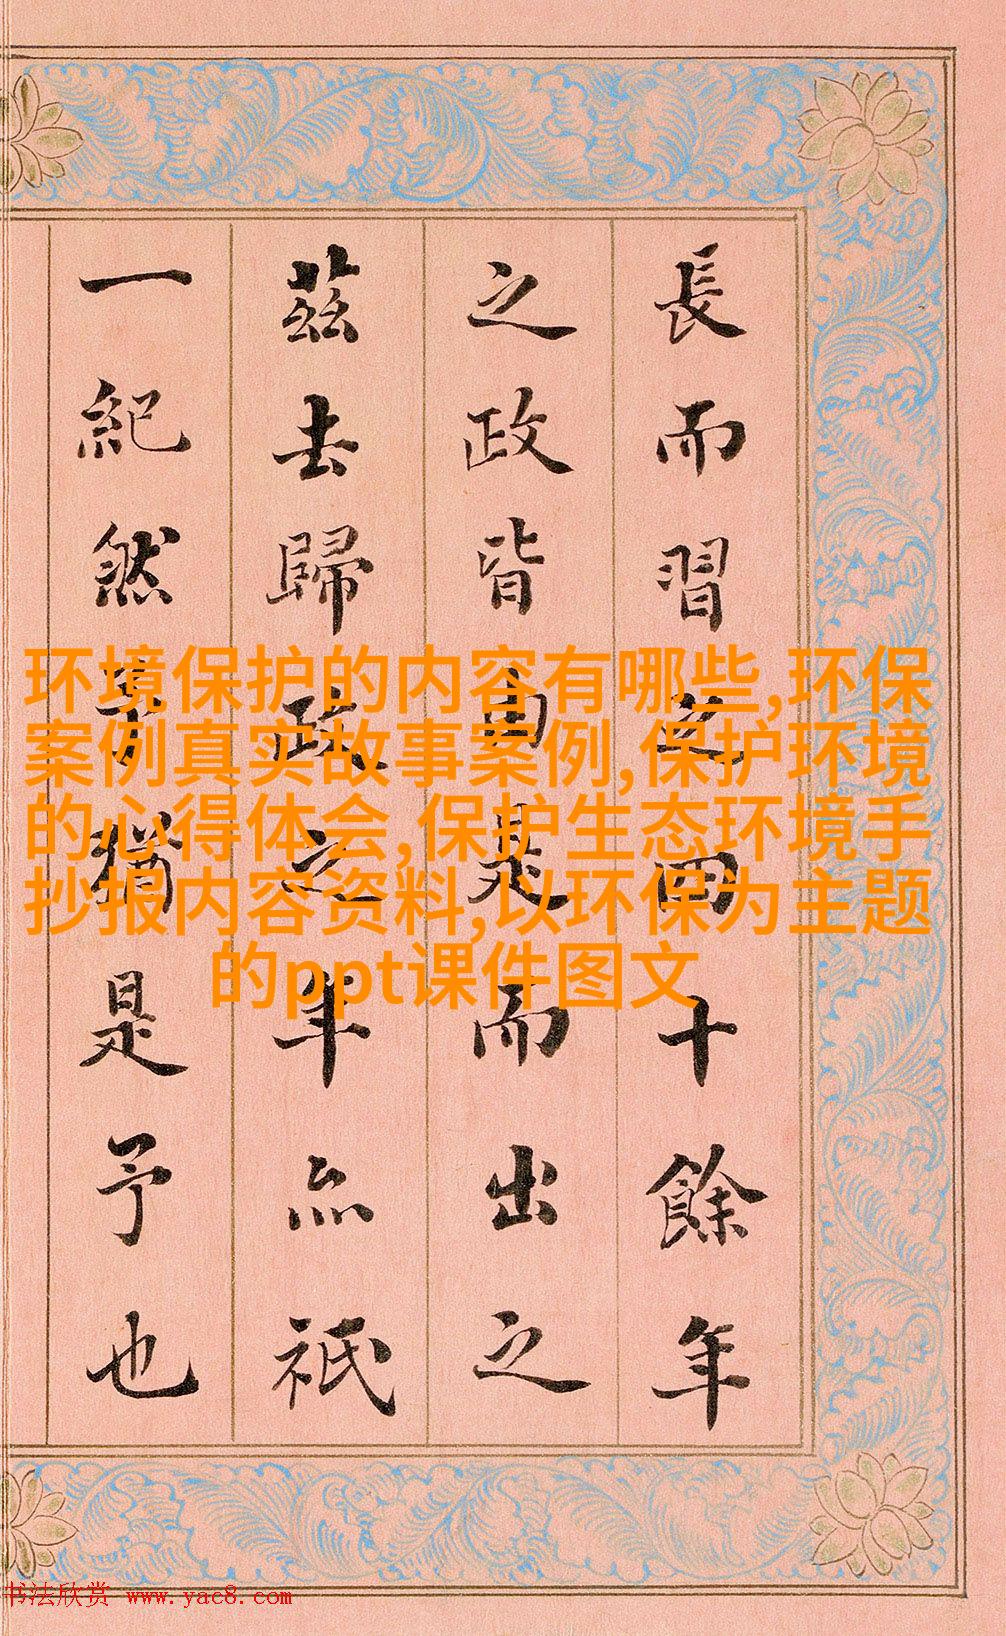 長而習之四十餘年
之政皆由是而出之
茲去歸政之年亦祇
一紀然予猶是予也
环境保护的内容有哪些,环保
案例真实故事案例,保护环境
的心得体会,保护生态环境手
抄报内容资料,以环保为主题
的ppt课件图文
书法欣赏 www.yac8.com